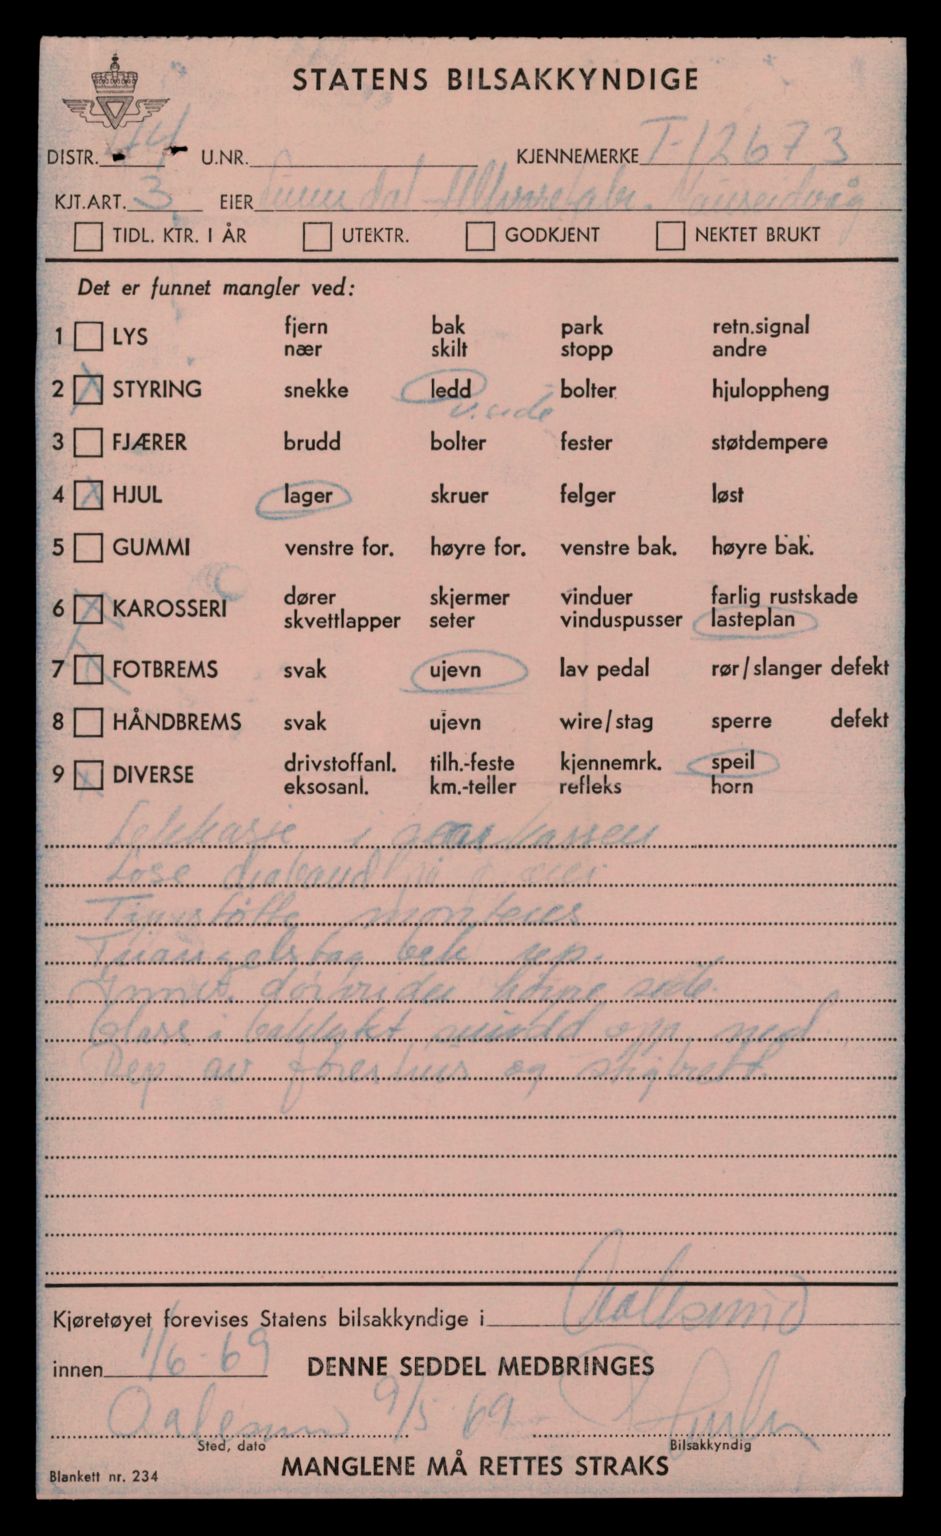 STATENS BILSAKKYNDIGE
DISTR. 44 U.NR. KJENNEMERKE T-12673
KJT.ART. 3 EIER Mauseidvåg
TIDL. KTR. I ÅR UTEKTR. GODKJENT NEKTET BRUKT
Det er funnet mangler ved:
1 LYS fjern bak park retn.signal
nær skilt stopp andre
2 X STYRING snekke ledd bolter hjuloppheng
v. side
3 FJÆRER brudd bolter fester støtdempere
4 X HJUL lager skruer felger løst
5 GUMMI venstre for. høyre for. venstre bak. høyre bak.
6 X KAROSSERI dører skjermer vinduer farlig rustskade
skvettlapper seter vinduspusser lasteplan
7 X FOTBREMS svak ujevn lav pedal rør/slanger defekt
8 HÅNDBREMS svak ujevn wire/stag sperre defekt
9 X DIVERSE drivstoffanl. tilh.-feste kjennemrk. speil
eksosanl. km.-teller refleks horn
Lekkasje i
Løse på
monteres
bak rep.
høyre side.
Glass i baklykt opp ned
Rep av førerhus og stigbrett.
Kjøretøyet forevises Statens bilsakkyndige i Aalesund
innen 1/6-69 DENNE SEDDEL MEDBRINGES
Aalesund 9/5-69
Sted, dato Bilsakkyndig
Blankett nr. 234 MANGLENE MÅ RETTES STRAKS